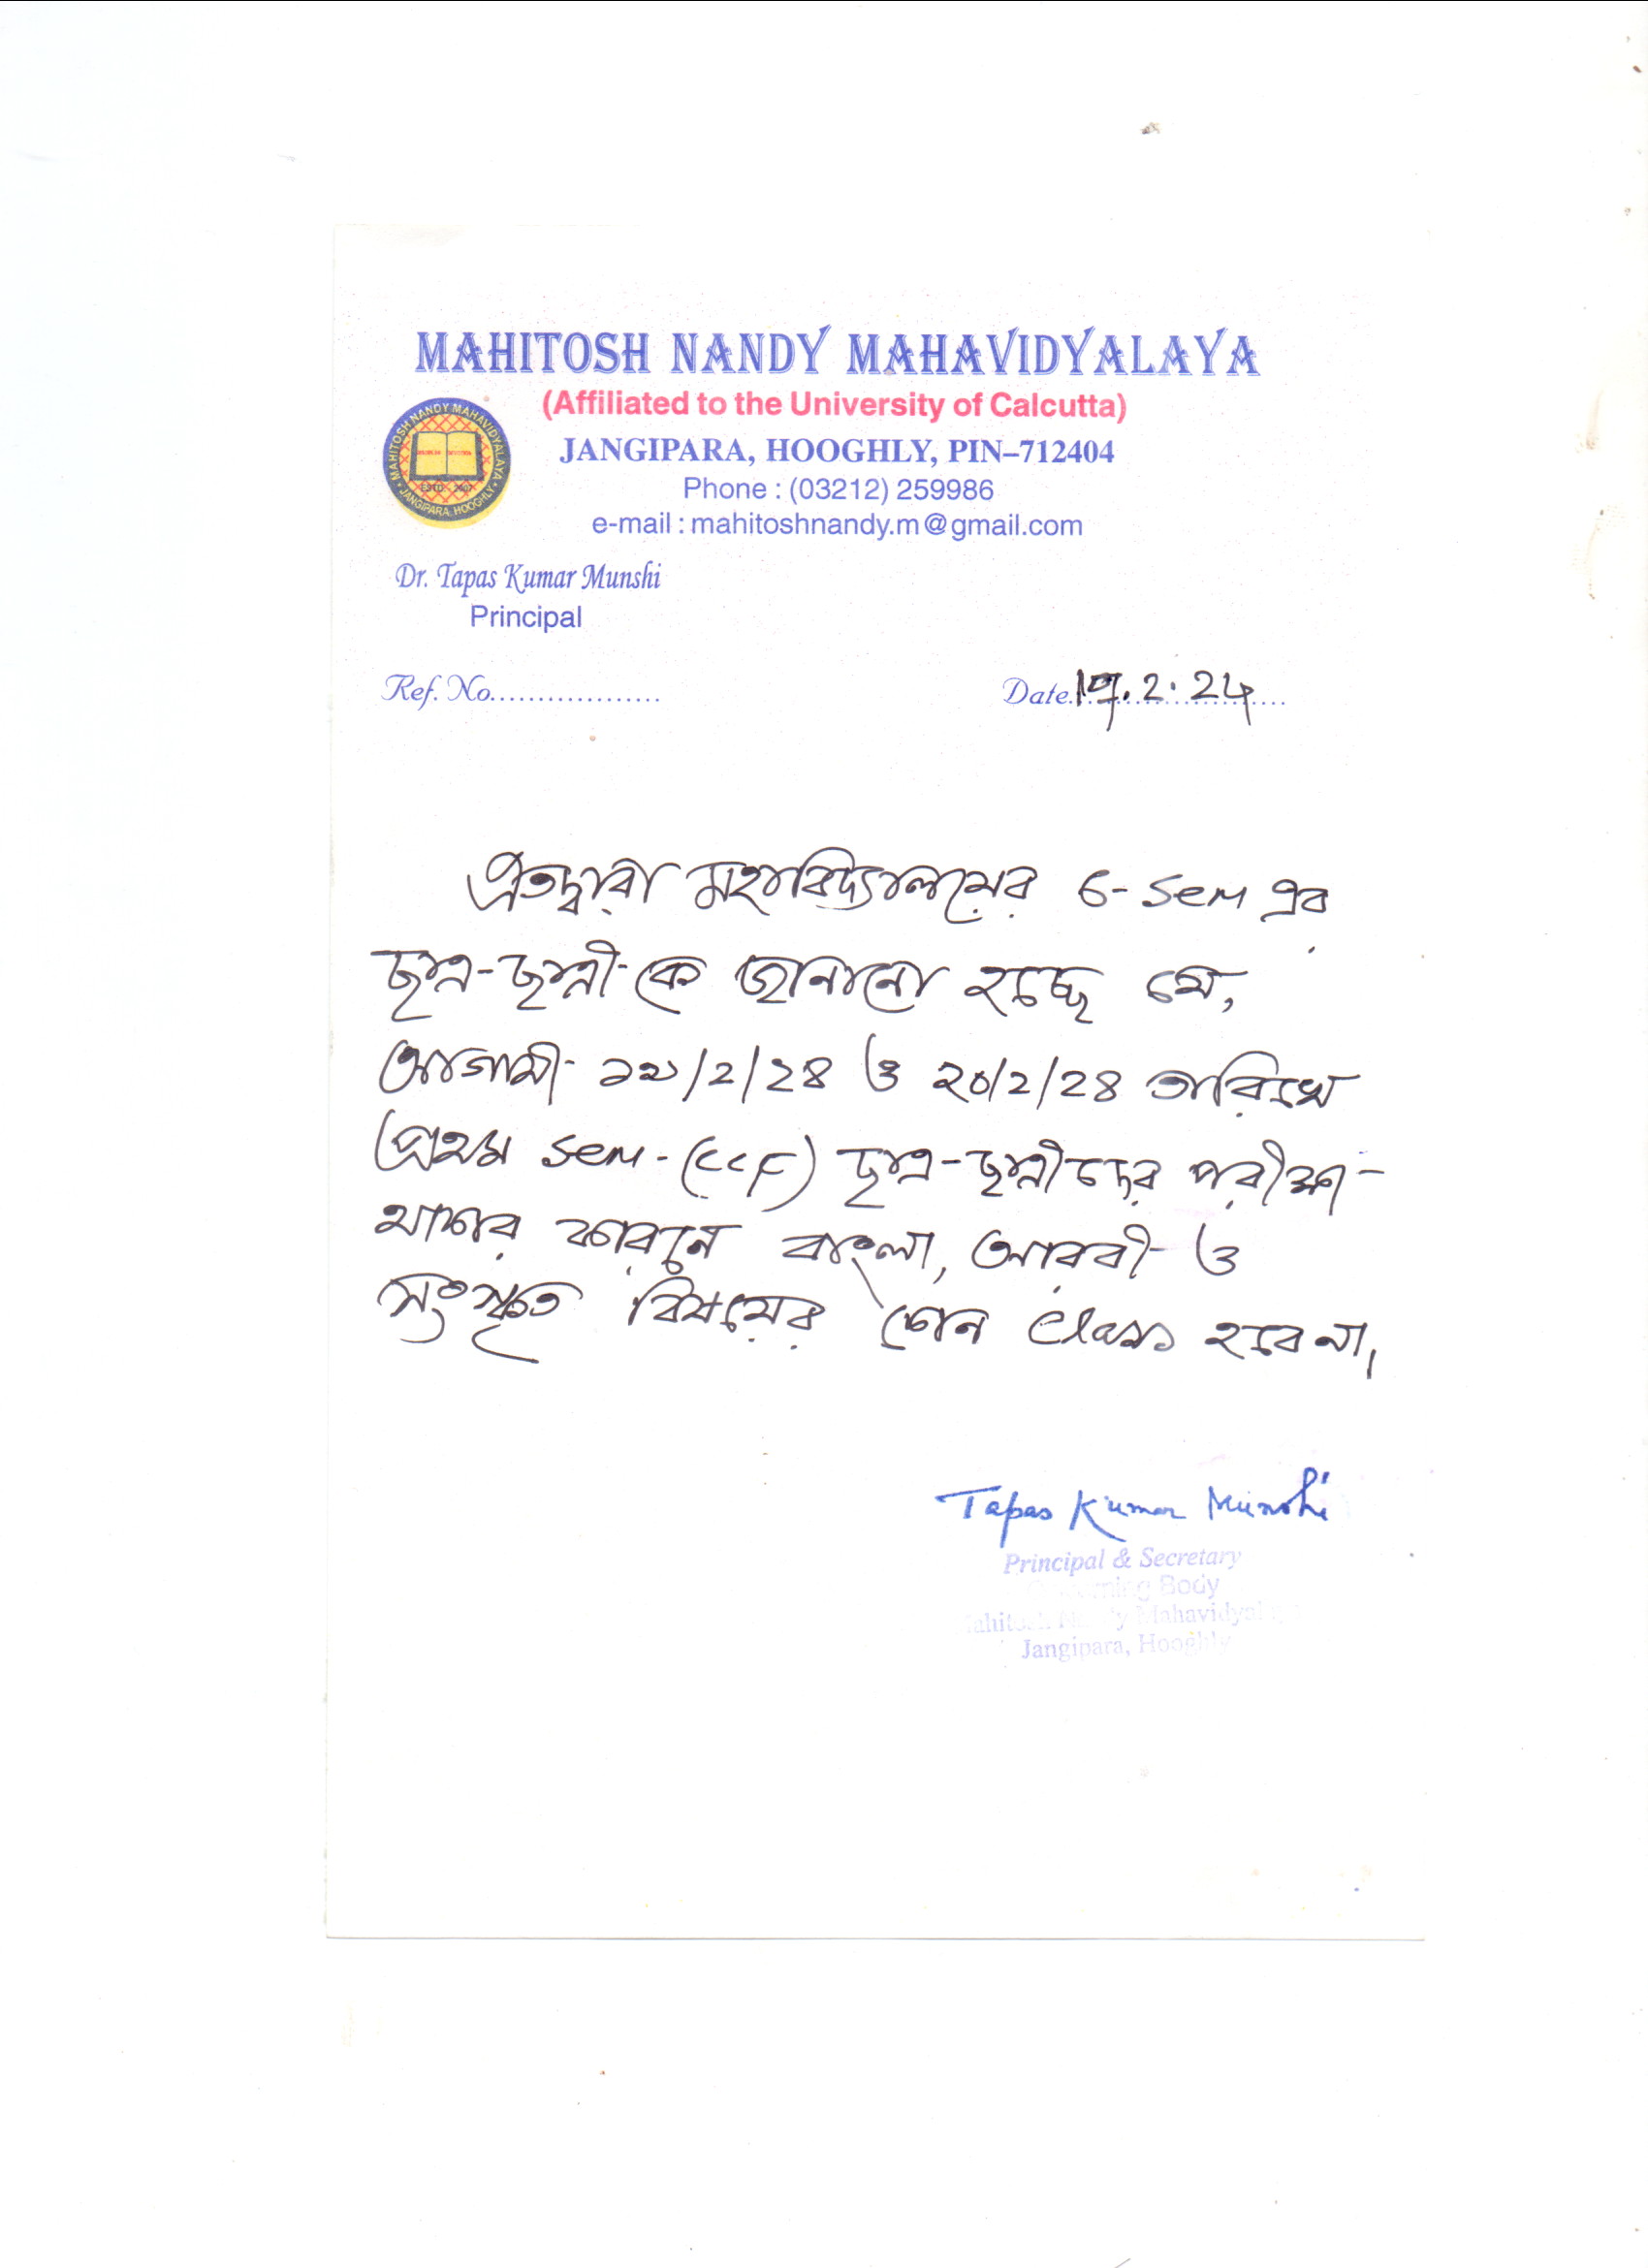 MAHITOSH NANDY MAHAVIDYALAYA
(Affiliated to the University of Calcutta)
JANGIPARA, HOOGHLY, PIN–712404
Phone : (03212) 259986
e-mail : mahitoshnandy.m@gmail.com
MAHITOSH NANDY MAHAVIDYALAYA
JANGIPARA, HOOGHLY
Dr. Tapas Kumar Munshi
Principal
Ref. No..................
Date. .2.24
এতদ্বারা মহাবিদ্যালয়ের 6-Sem এর
ছাত্র-ছাত্রী-কে জানানো হচ্ছে যে,
আগামী ১৯/2/২৪ ও ২০/2/২৪ তারিখে
প্রথম Sem-(CCF) ছাত্র-ছাত্রীদের পরীক্ষা
থাকার কারনে বাংলা, আরবী ও
সংস্কৃত বিষয়ের কোন class হবে না,
Tapas Kumar Munshi
Principal & Secretary
Governing Body
Mahitosh Nandy Mahavidyalaya
Jangipara, Hooghly